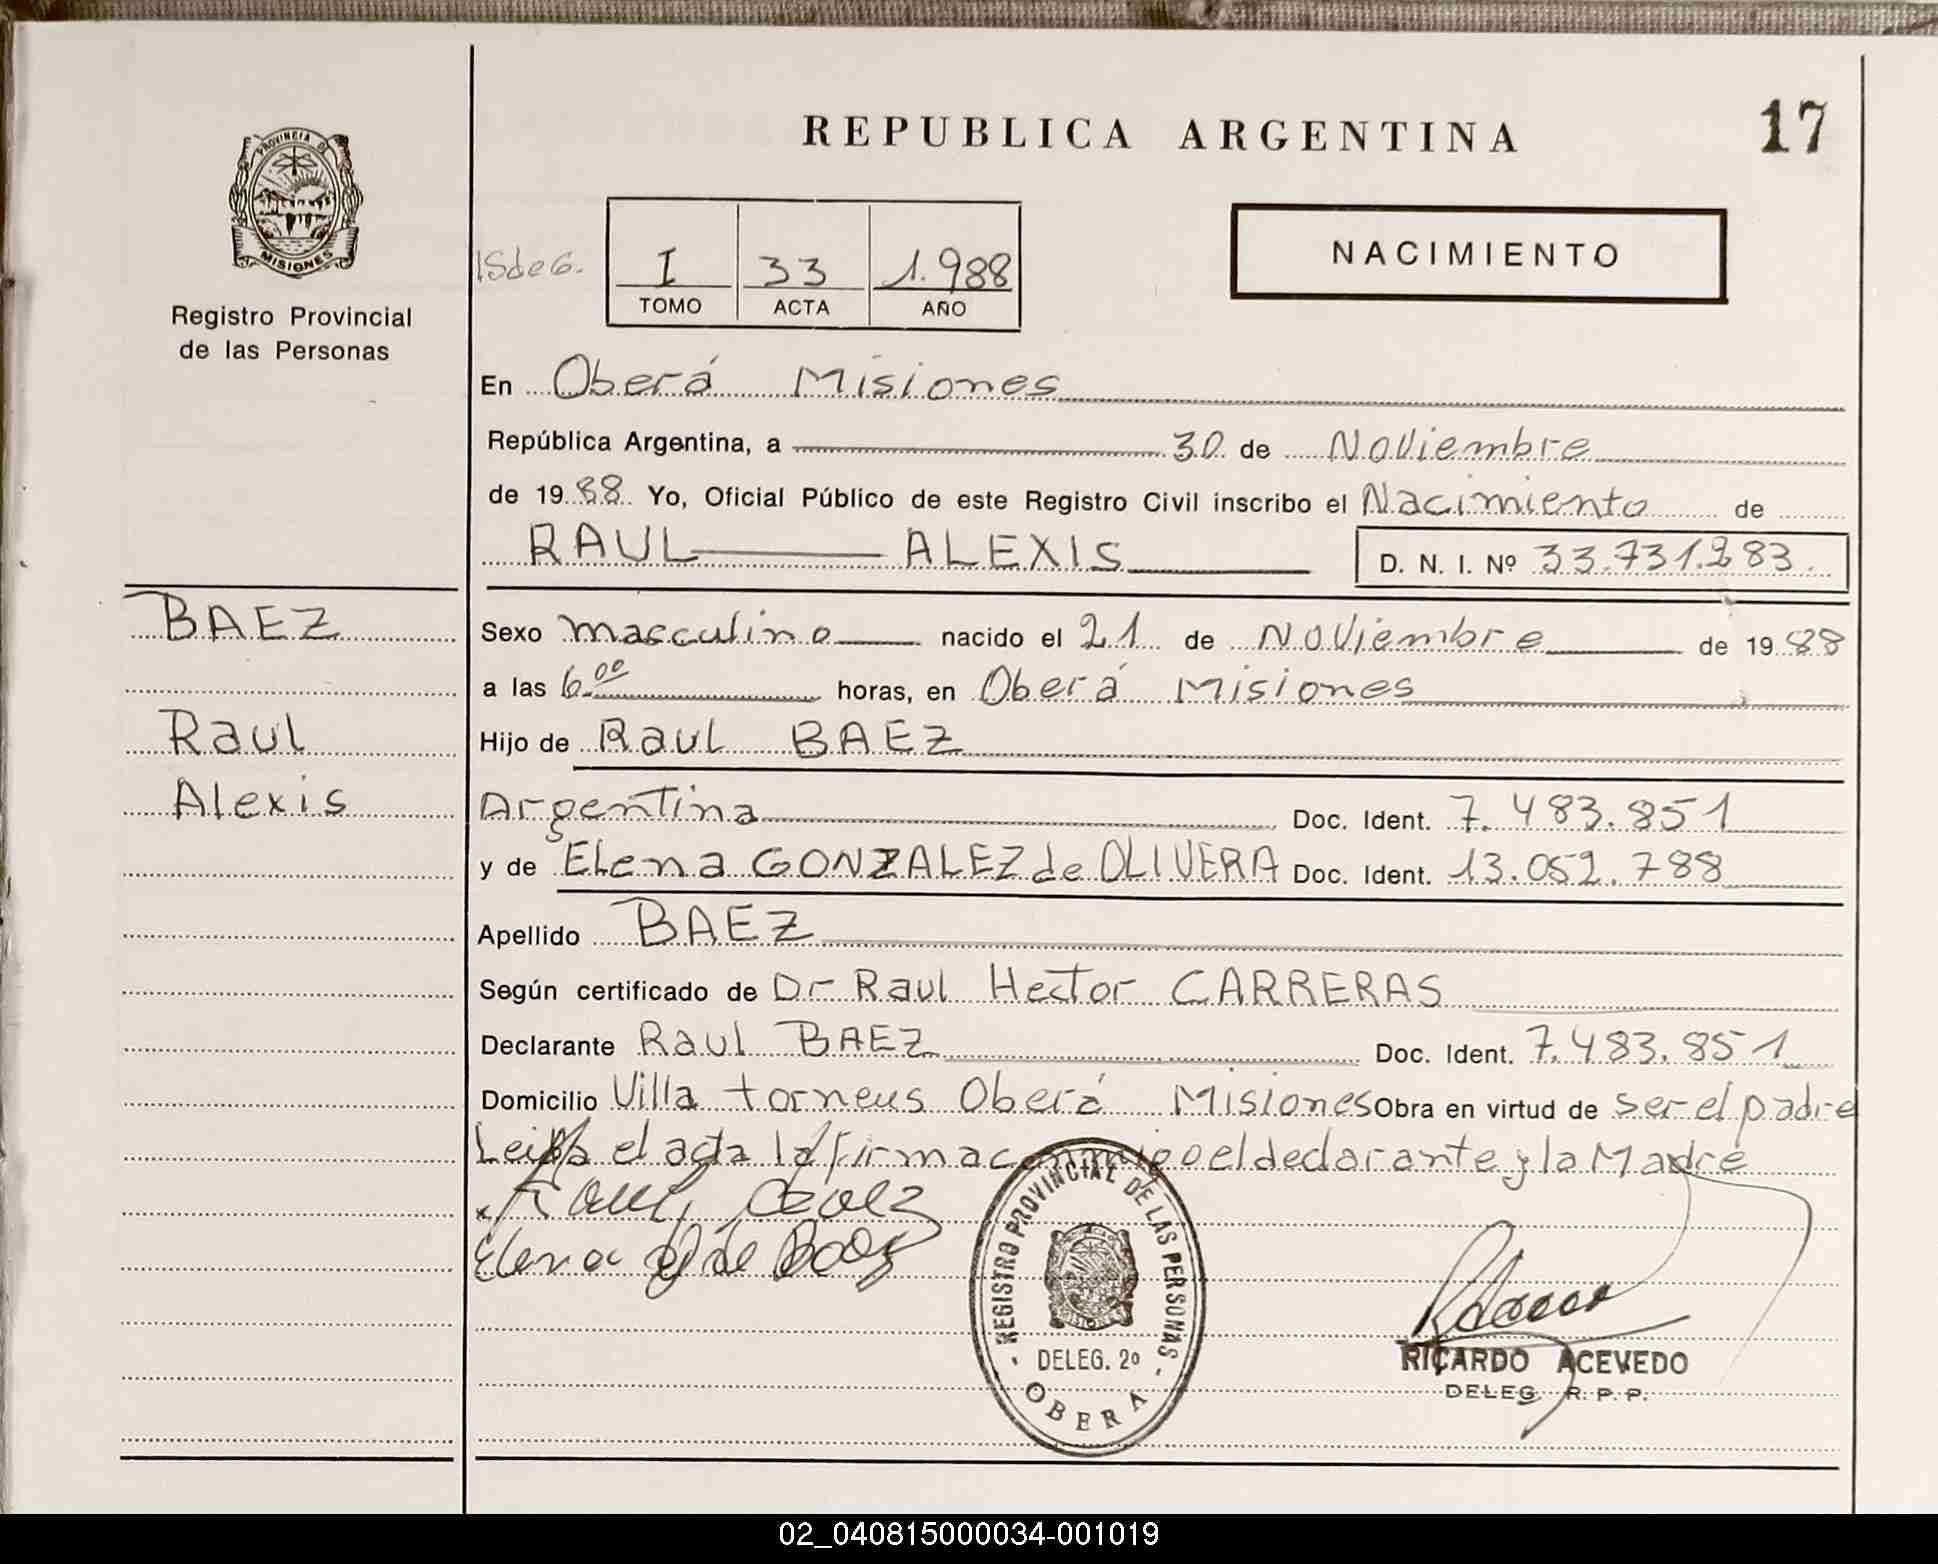 REPUBLICA ARGENTINA
17
PROVINCIA DE
MISIONES
Registro Provincial
de las Personas
I 33 1.988
TOMO ACTA AÑO
NACIMIENTO
En Oberá Misiones
República Argentina, a 30 de Noviembre
de 1988 Yo, Oficial Público de este Registro Civil inscribo el Nacimiento de
RAUL ALEXIS D. N. I. Nº 33.731.283.
BAEZ
Raul
Alexis
Sexo masculino nacido el 21 de Noviembre de 1988
a las 6.00 horas, en Oberá Misiones
Hijo de Raul BAEZ
Argentina Doc. Ident. 7.483.851
y de Elena GONZALEZ de OLIVERA Doc. Ident. 13.052.788
Apellido BAEZ
Según certificado de Dr Raul Hector CARRERAS
Declarante Raul BAEZ Doc. Ident. 7.483.851
Domicilio Villa torneus Oberá Misiones Obra en virtud de ser el padre
Leida el acta la firma conmigo el declarante y la Madre
Elena G de Baez
REGISTRO PROVINCIAL DE LAS PERSONAS
MISIONES
DELEG. 2º
OBERA
RICARDO ACEVEDO
DELEG. R. P. P.
02_040815000034-001019